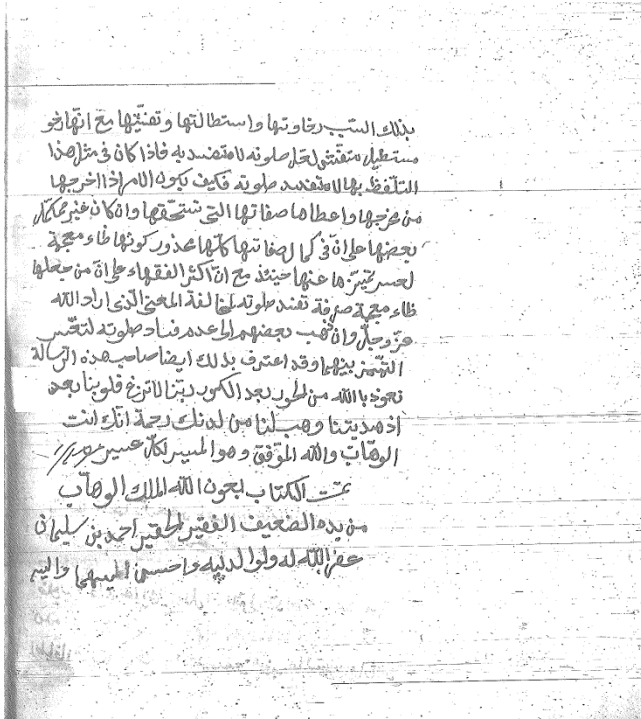 بذلك السبب رخاوتها واستطالتها وتفشّيها مع انّها رخو
مستطيل متفشّى لعل صلوته لا تفسد به فاذا كان فى مثل هذا
التلفّظ بها لا تفسد صلوته فكيف يكون الامر اذا اخرجها
من مخرجها واعطاها صفاتها التى تستحقّها وان كان غير مكمّل
بعضها على انّ فى كمال صفاتها كلّها محذور كونها ظاء معجمة
لعسر تميّزها عنها حينئذ مع انّ اكثر الفقهاء على انّ من جعلها
ظاء معجمة صرفة تفسد صلوته لمخالفة المعنى الّذى اراد الله
عزّ وجلّ وان ذهب بعضهم الى عدم فساد صلوته لتعسّر
التميّز بينهما وقد اعترف بذلك ايضا صاحب هذه الرّسالة
نعوذ بالله من الحور بعد الكور ربّنا لا تزغ قلوبنا بعد
اذ هديتنا وهب لنا من لدنك رحمة انّك انت
الوهّاب والله الموّفق وهو الميسر لكلّ عسير
تمت الكتاب بعون الله الملك الوهّاب
من يده الضعيف الفقير الحقير احمد بن سليمان
غفر الله له ولوالديه واحسن اليهما واليه